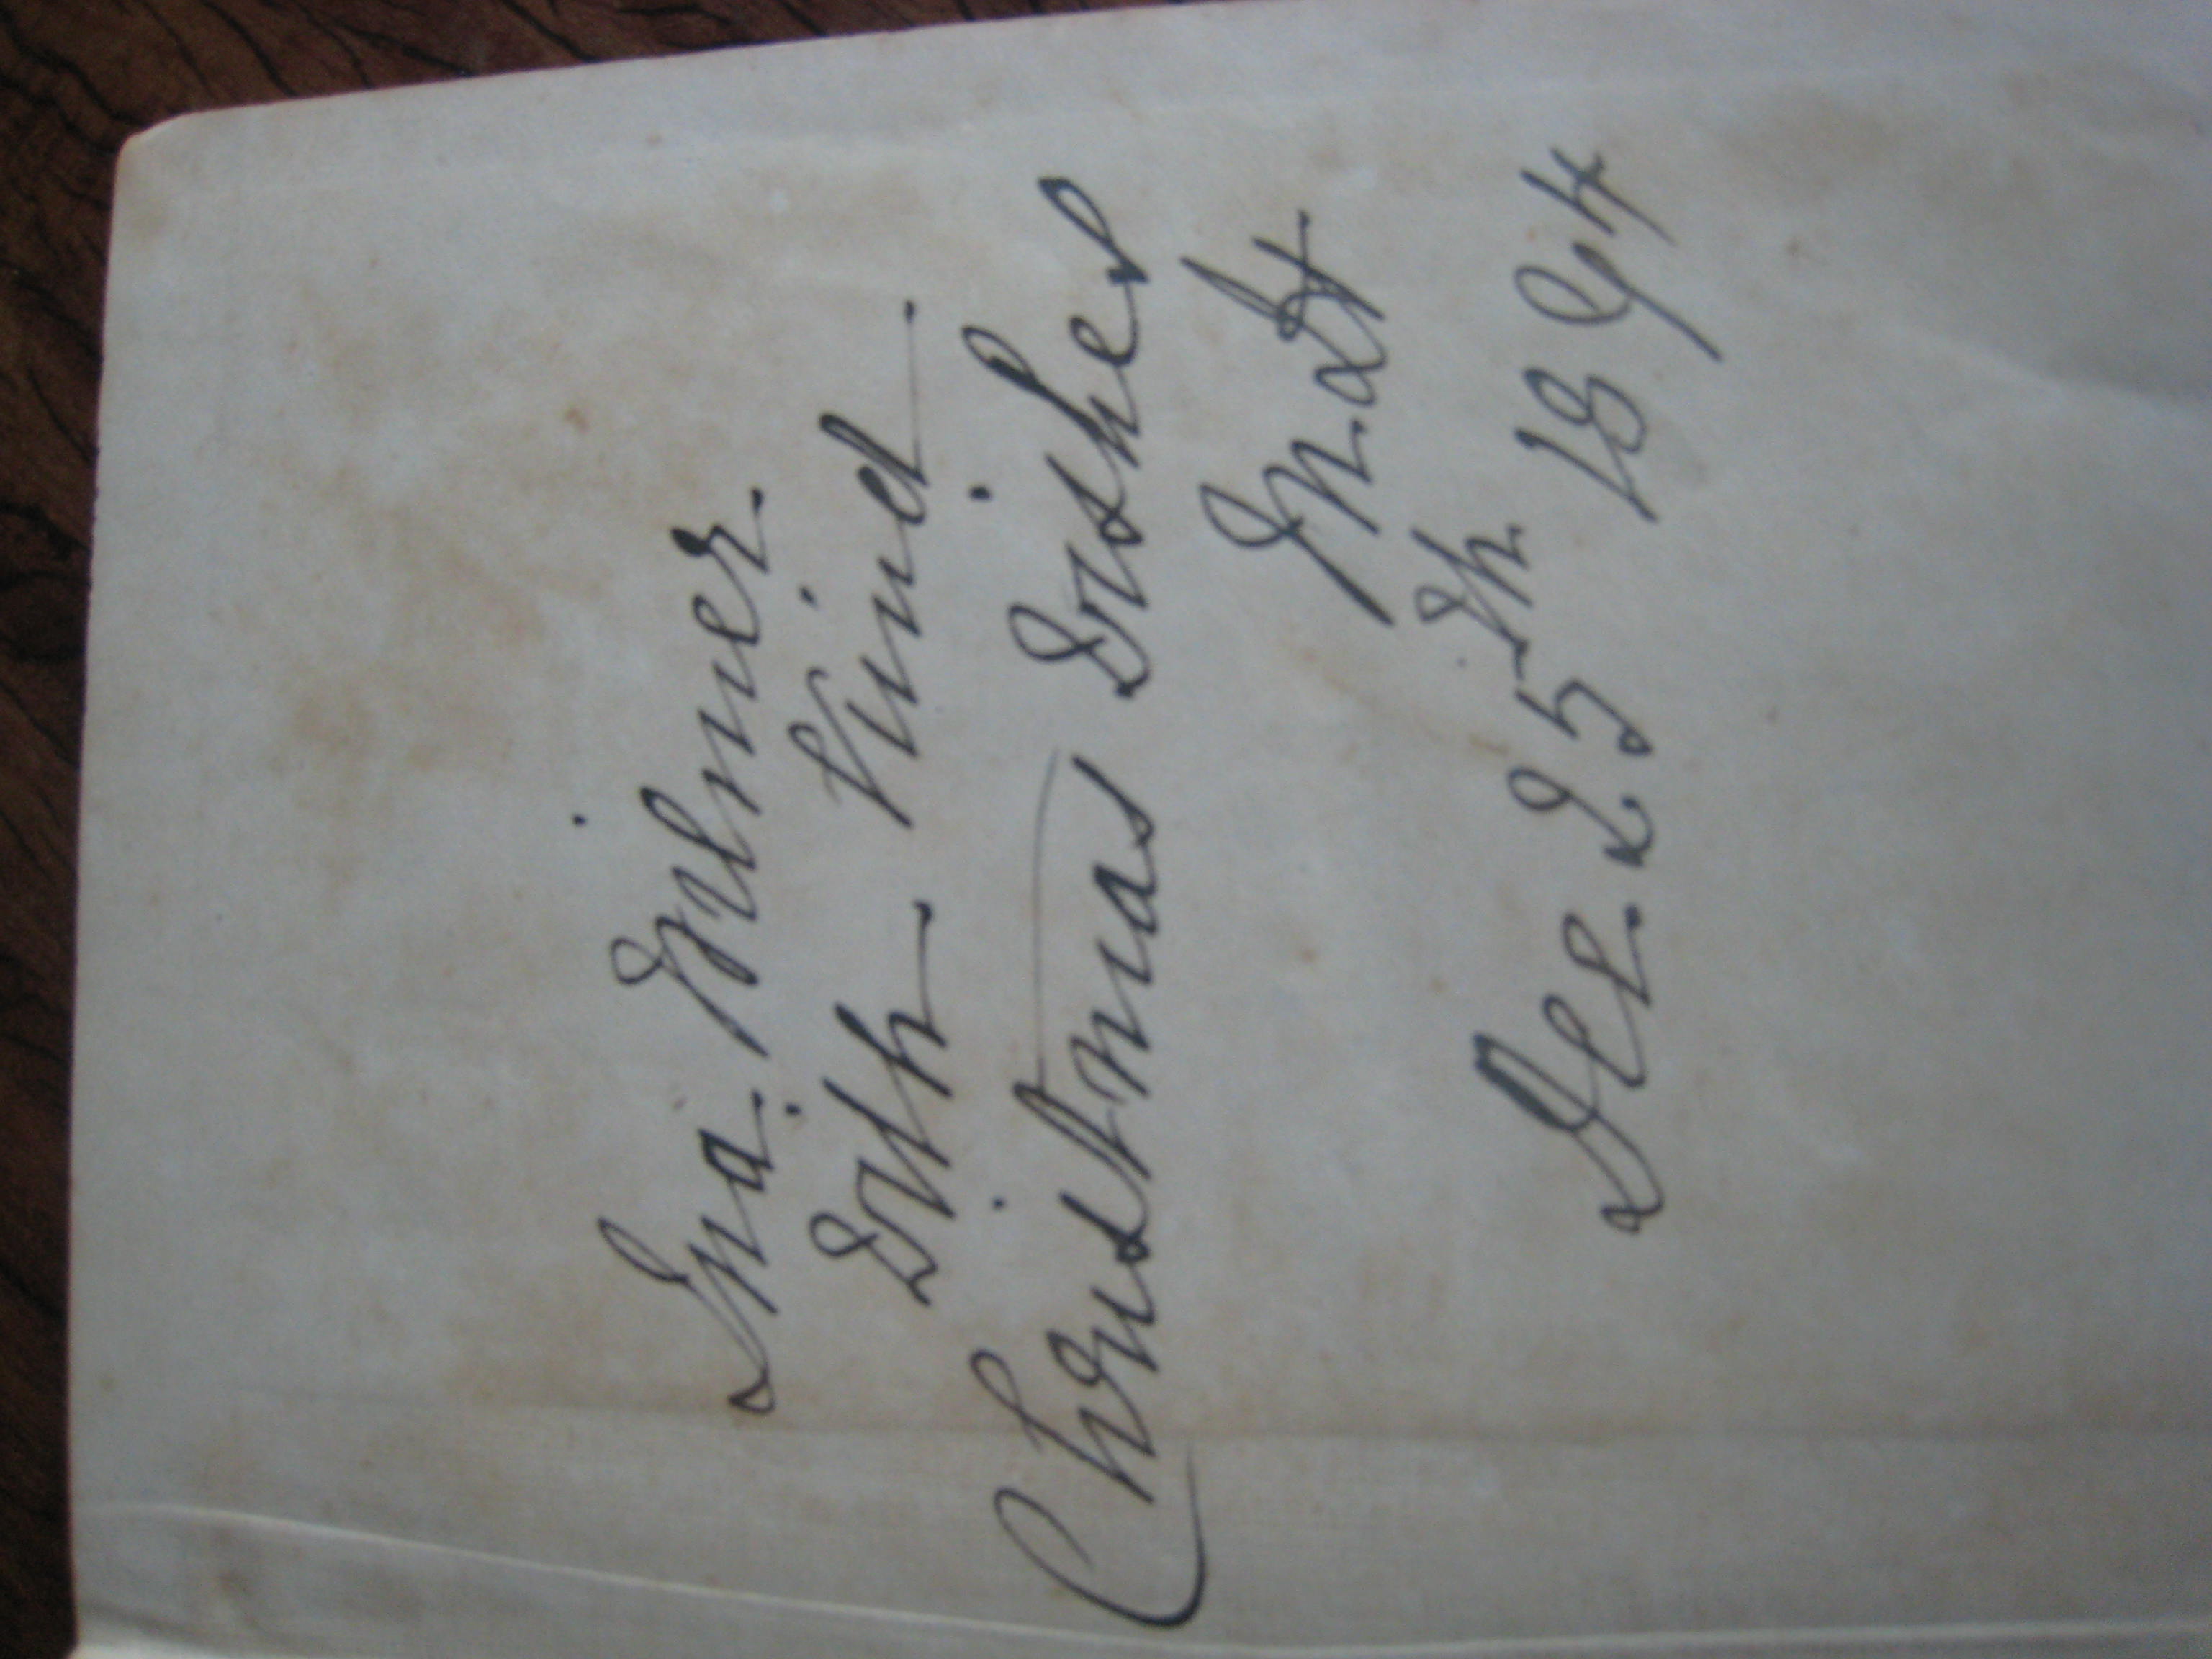 Ina. Milmer.
With Kind
Christmas Wishes
Dec. 25th 1894